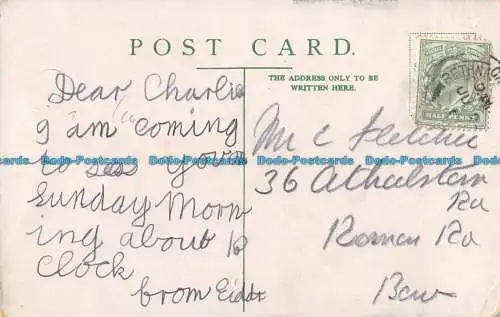 POST CARD.
THE ADDRESS ONLY TO BE
WRITTEN HERE.
HALF PENNY
Dear Charlie
I am coming
to see you
Sunday Morn
ing about 10
clock
from
Mr C Fletcher
36 Athelstan
Rd
Roman Rd
Bow
Do-Postcards Do-Postcards Do-Postcards Do-Postcards